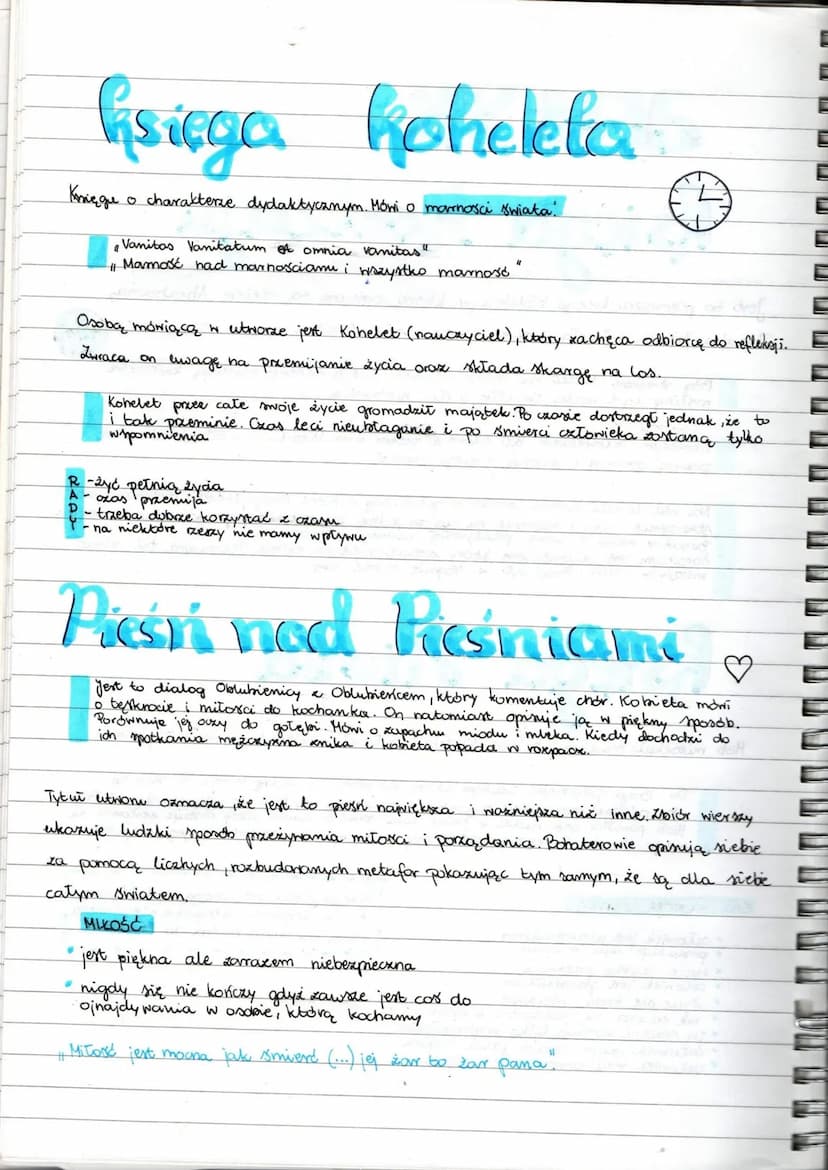 księga koheleta
Księga o charakterze dydaktycznym. Mówi o marności świata!
"Vanitas Vanitatum et omnia vanitas"
"Marność nad marnościami i wszystko marność"
Osobą mówiącą w utworze jest Kohelet (nauczyciel), który zachęca odbiorcę do refleksji.
Zwraca on uwagę na przemijanie życia oraz składa skargę na los.
Kohelet przez całe swoje życie gromadził majątek. Po czasie dostrzegł jednak, że to
i tak przeminie. Czas leci nieubłaganie i po śmierci człowieka zostaną tylko
wspomnienia
RADY
- żyć pełnią życia
- czas przemija
- trzeba dobrze korzystać z czasu
- na niektóre rzeczy nie mamy wpływu
Pieśń nad Pieśniami
Jest to dialog Oblubienicy z Oblubieńcem, który komentuje chór. Kobieta mówi
o tęsknocie i miłości do kochanka. On natomiast opisuje ją w piękny sposób.
Porównuje jej oczy do gołębi. Mówi o zapachu miodu i mleka. Kiedy dochodzi do
ich spotkania mężczyzna znika i kobieta popada w rozpacz.
Tytuł utworu oznacza, że jest to pieśń największa i ważniejsza niż inne. Zbiór wierszy
ukazuje ludzki sposób przeżywania miłości i porządania. Bohaterowie opisują siebie
za pomocą licznych, rozbudowanych metafor pokazując tym samym, że są dla siebie
całym światem.
MIŁOŚĆ
• jest piękna ale zarrazem niebezpieczna
• nigdy się nie kończy gdyż zawsze jest coś do
ojnajdywania w osobie, którą kochamy
"Miłość jest mocna jak śmierć (...) jej żar to żar pana".